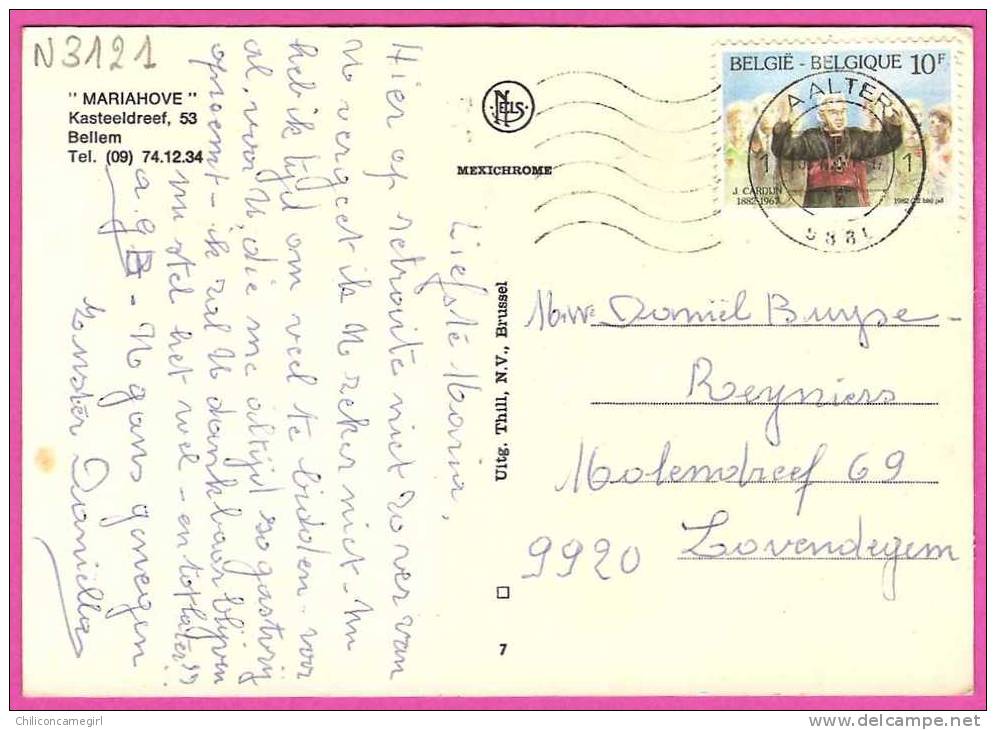 N3121
" MARIAHOVE "
Kasteeldreef, 53
Bellem
Tel. (09) 74.12.34
NELS
MEXICHROME
BELGIË - BELGIQUE 10F
J. CARDIJN
1882-1967
1982
AALTER
1 1
9881
Liefste Maria,
Hier op retraite niet zo ver van
U vergeet ik U zeker niet - Nu
heb ik tijd om veel te bidden - voor
al, voor U, die me altijd zo gastvrij
opneemt - ik zal U dankbaar blijven
nu stel het wel - en tot later!!
a.g.B. - U gans genegen
Zuster Daniella
Uitg. Thill, N.V., Brussel
7
Mw Daniël Buyse -
Reyniers
Molendreef 69
9920 Lovendegem
Chiliconcarnegirl
delcampe.net